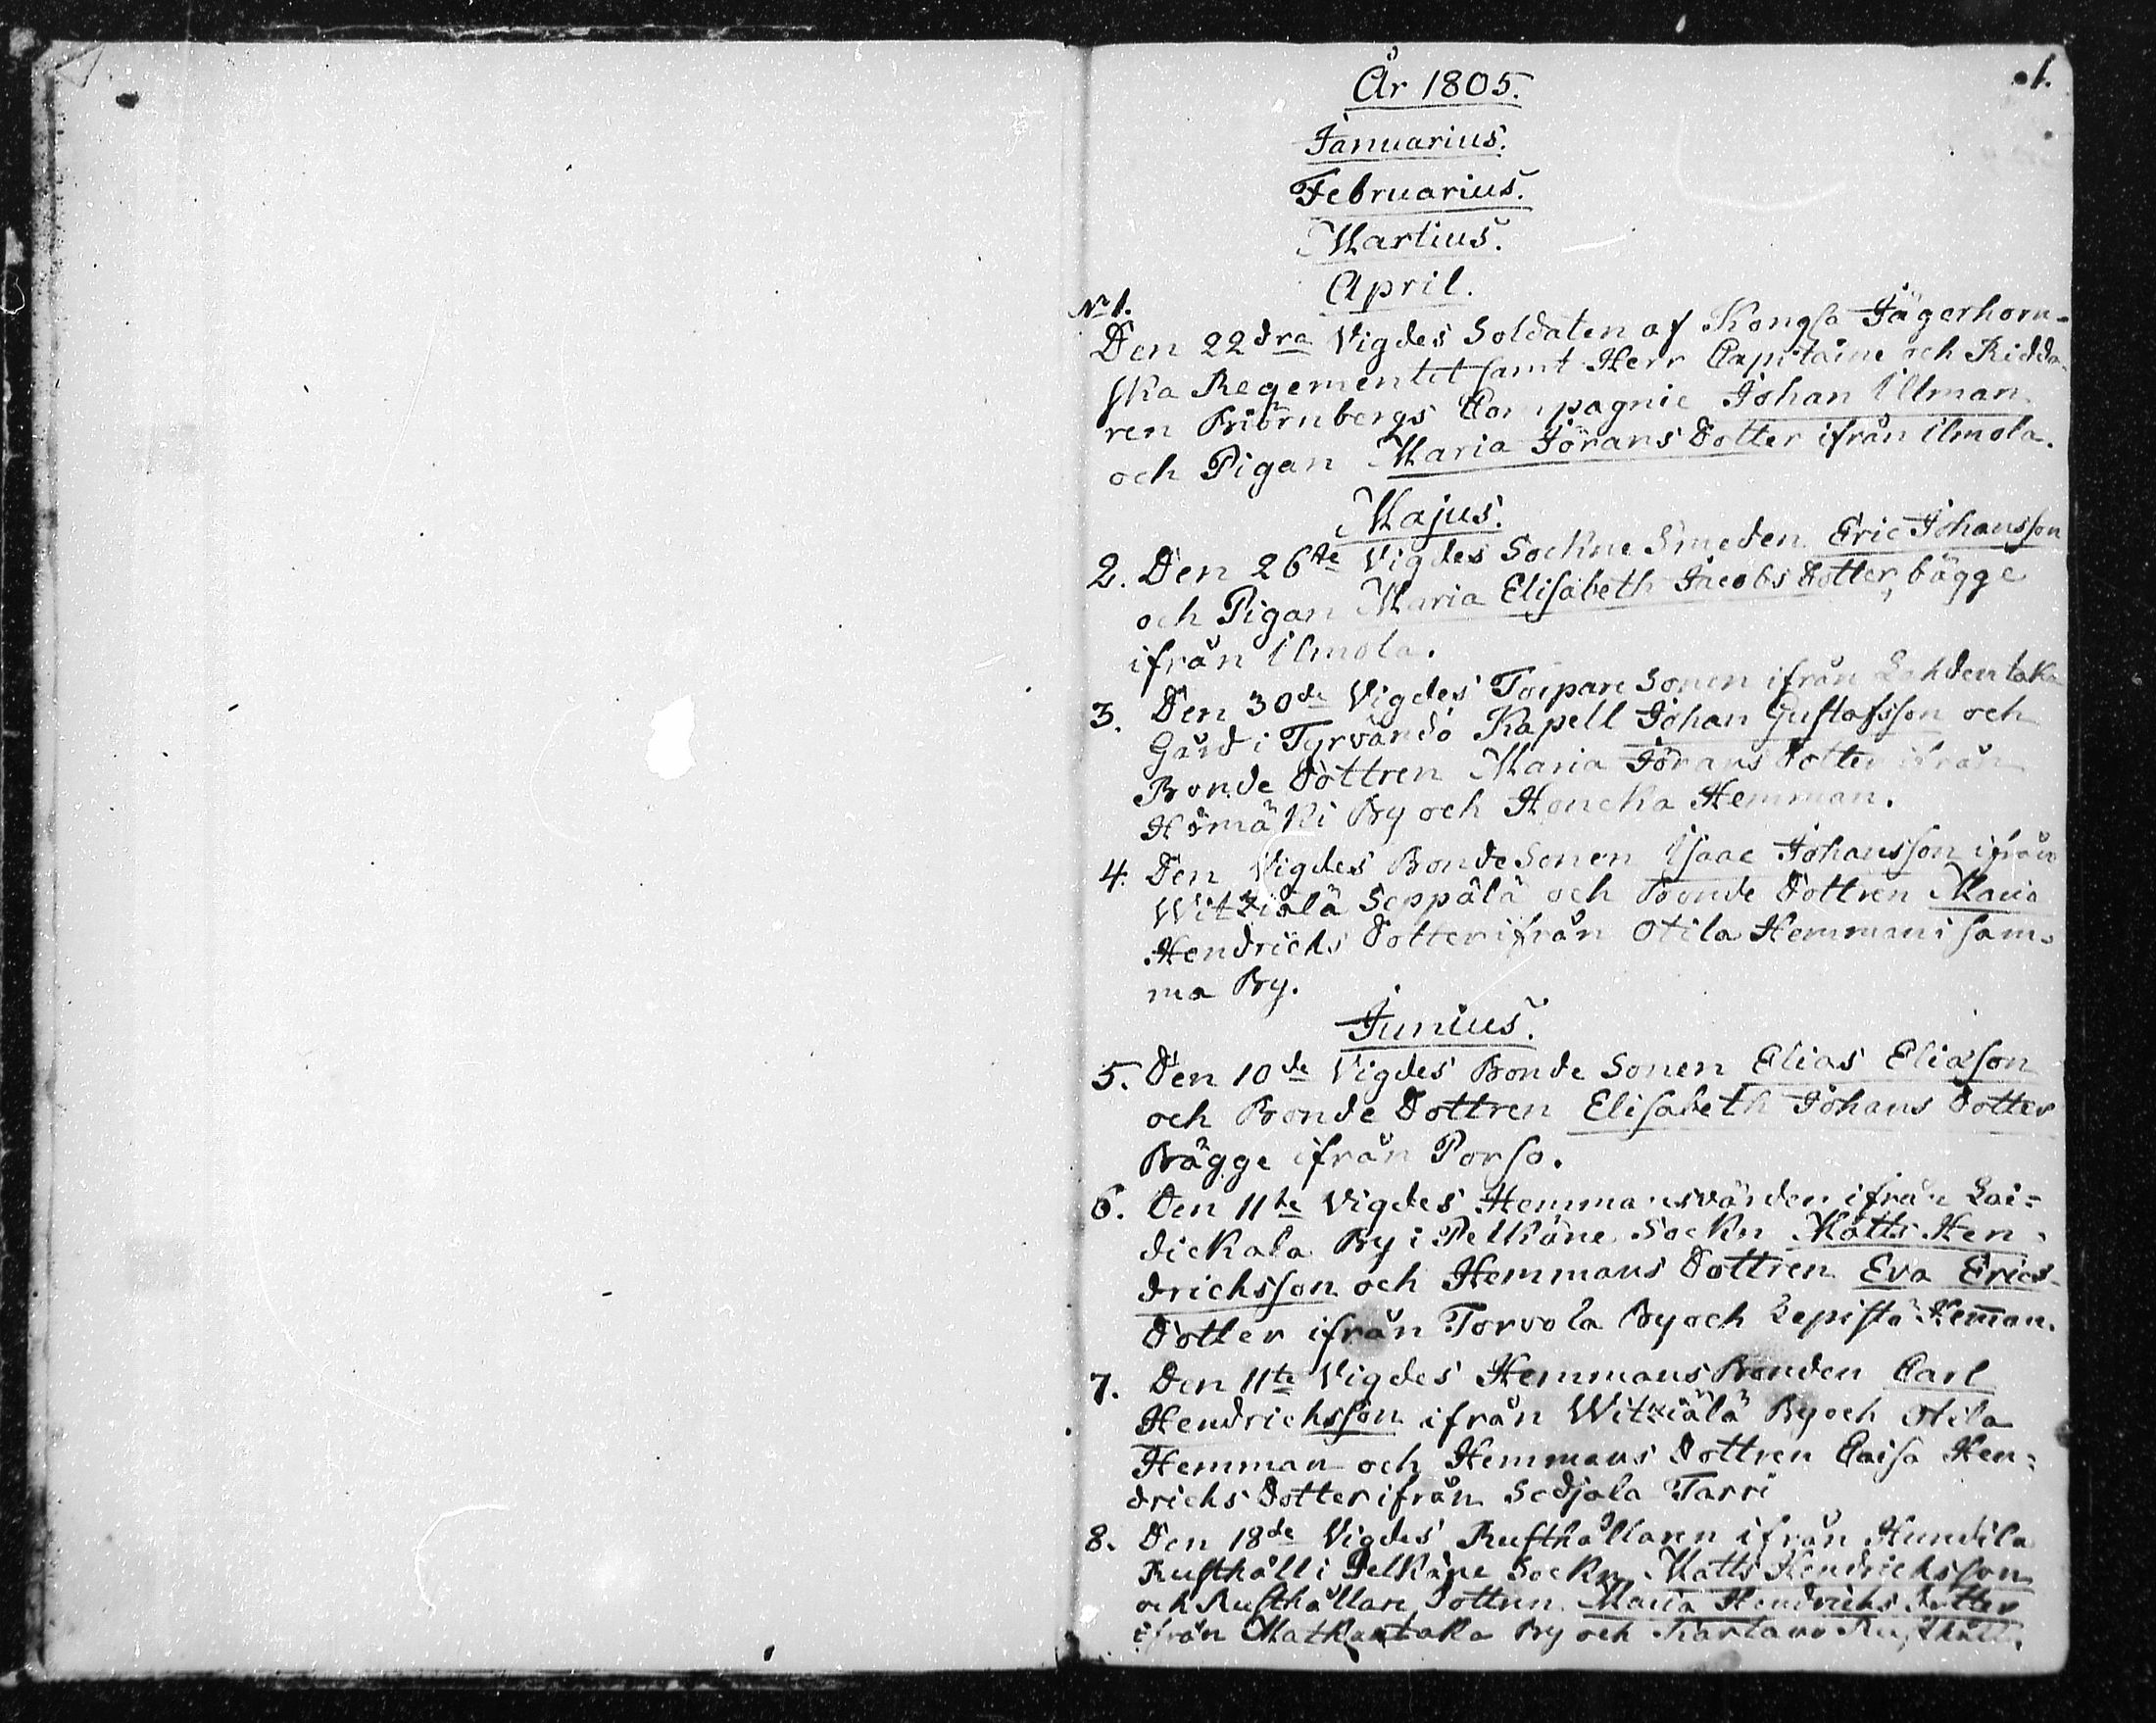 1.
År 1805.
Januarius.
Februarius.
Martius.
April.
No 1.
Den 22dra Vigdes Soldaten af Kongla Jägerhorn-
ska Regementet samt Herr Capitaine och Ridda-
ren Biörnbergs Compagnie Johan Ullman
och Pigan Maria Jörans Dotter ifrån Ilmola.
Majus.
2. Den 26te Vigdes Sockne Smeden Eric Johansson
och Pigan Maria Elisabeth Jacobs Dotter, bägge
ifrån Ilmola.
3. Den 30de Vigdes Torpare Sonen ifrån Lahdentaka
Gård i Tyrvändö Kapell Johan Gustafsson och
Bonde Dottren Maria Jörans Dotter ifrån
Humäki By och Honcka Hemman.
4. Den Vigdes Bonde Sonen Isaac Johansson ifrån
Witziälä Seppälä och Bonde Dottren Maria
Hendrichs Dotter ifrån Otila Hemman i sam-
ma By.
Junius.
5. Den 10de Vigdes Bonde Sonen Elias Eliasson
och Bonde Dottren Elisabeth Johans Dotter
Bägge ifrån Porso.
6. Den 11te Vigdes Hemmansvärden ifrån Lai=
dickala By i Pelkäne Sockn Matts Hen-
drichsson och Hemmans Dottren Eva Erics-
Dotter ifrån Torvola By och Lepistö Hem̅an.
7. Den 11te Vigdes Hemmans Bonden Carl
Hendrichsson ifrån Witziälä By och Otila
Hemman och Hemmans Dottren Caisa Hen=
drichs Dotter ifrån Sedjala Tarri
8. Den 18de Vigdes Rusthållaren ifrån Hundila
Rusthåll i Pelkäne Sockn Matts Hendrichsson
och Rusthållare Dottren Maria Hendrichs Dotter
ifrån Matkantaka By och Kartano Rusthåll.